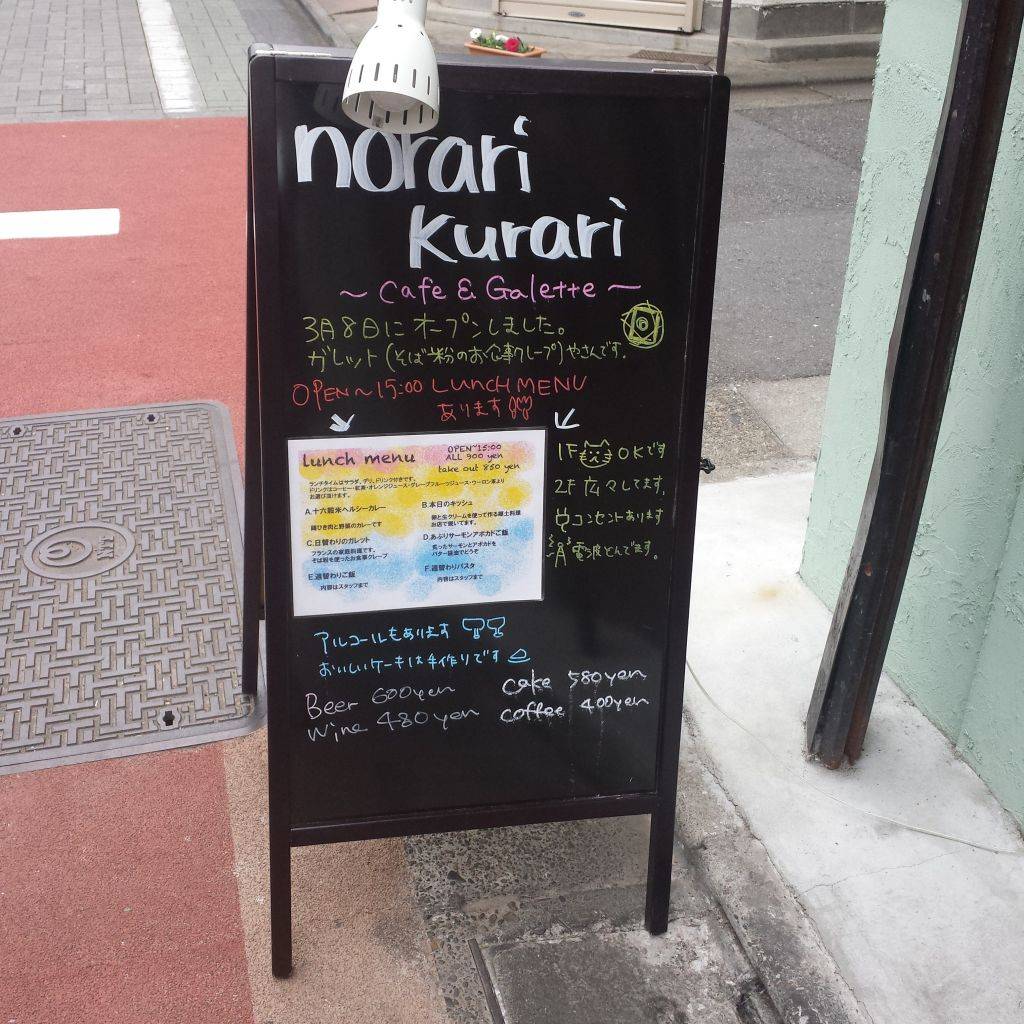 norari
kurari
～ Cafe & Galette ～
3月8日にオープンしました。
ガレット(そば粉のお食事クレープ)やさんです。
OPEN～15:00 LUNCH MENU
あります
lunch menu
OPEN~15:00
ALL 900 yen
take out 850 yen
ランチタイムはサラダ、デリ、ドリンク付きです。
ドリンクはコーヒー・紅茶・オレンジジュース・グレープフルーツジュース・ウーロン茶より
お選び頂けます。
A.十六穀米ヘルシーカレー
鶏ひき肉と野菜のカレーです
B.本日のキッシュ
卵と生クリームを使って作る郷土料理
お店で焼いてます。
C.日替わりのガレット
フランスの家庭料理です。
そば粉を使ったお食事クレープ
D.あぶりサーモンアボカドご飯
炙ったサーモンとアボカドを
バター醤油でどうぞ
E.週替わりご飯
内容はスタッフまで
F.週替わりパスタ
内容はスタッフまで
1F OKです
2F 広々してます。
コンセントあります
電波とんでます。
アルコールもあります
おいしいケーキは手作りです
Beer 600yen
Wine 480yen
cake 580yen
coffee 400yen